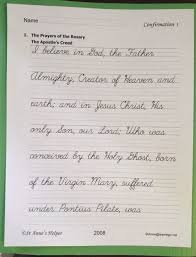 Name
Confirmation 1
1. The Prayers of the Rosary
The Apostle's Creed
I believe in God, the Father
Almighty, Creator of Heaven and
earth; and in Jesus Christ, His
only Son, our Lord; Who was
conceived by the Holy Ghost, born
of the Virgin Mary, suffered
under Pontius Pilate, was
St Anne's Helper
2008